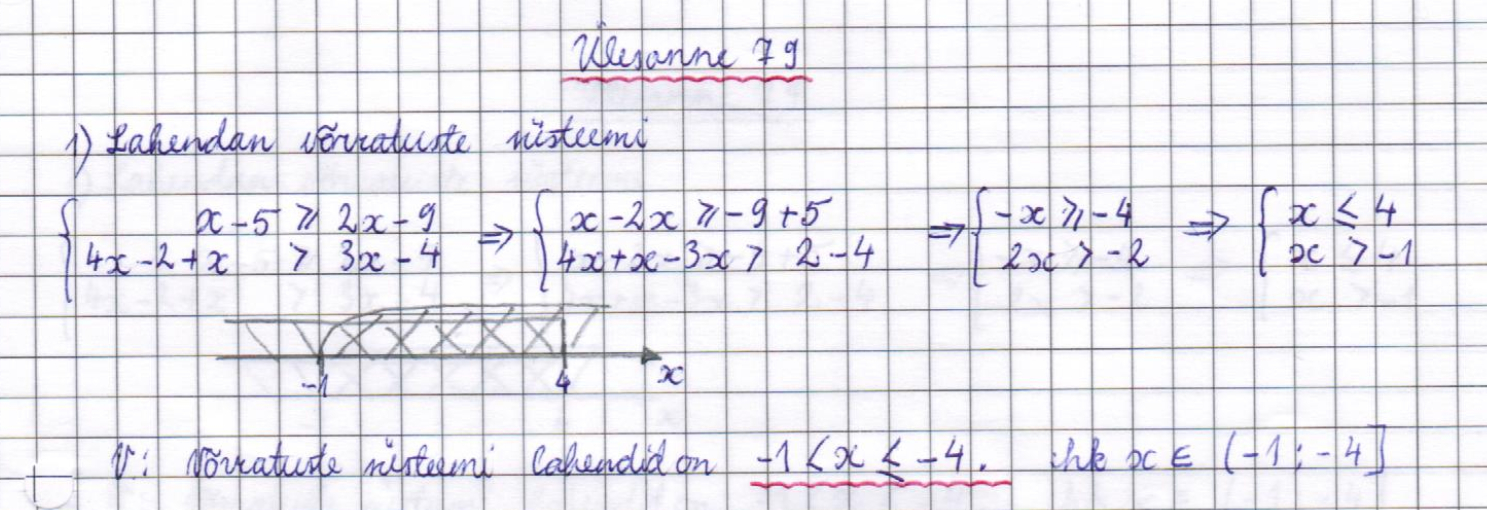 Ülesanne 79
1) Lahendan võrratuste süsteemi
{ x-5 ≥ 2x-9 ⇒ { x-2x ≥ -9+5 ⇒ { -x ≥ -4 ⇒ { x ≤ 4
4x-2+x > 3x-4 4x+x-3x > 2-4 2x > -2 x > -1
-1 4 x
V: Võrratuste süsteemi lahendid on -1 < x ≤ -4. ehk x ∈ (-1; -4]